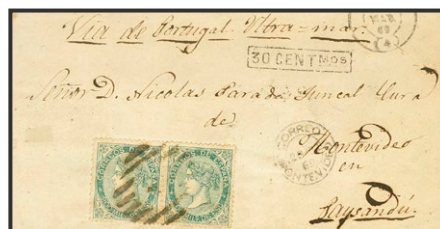 Via de Portugal. Ultra=mar.
MAR
69
30 CENTMOS
Señor D. Nicolas Parada Juncal Cura
de
CORREO
MONTEVIDEO
Montevideo
en
Paysandú.